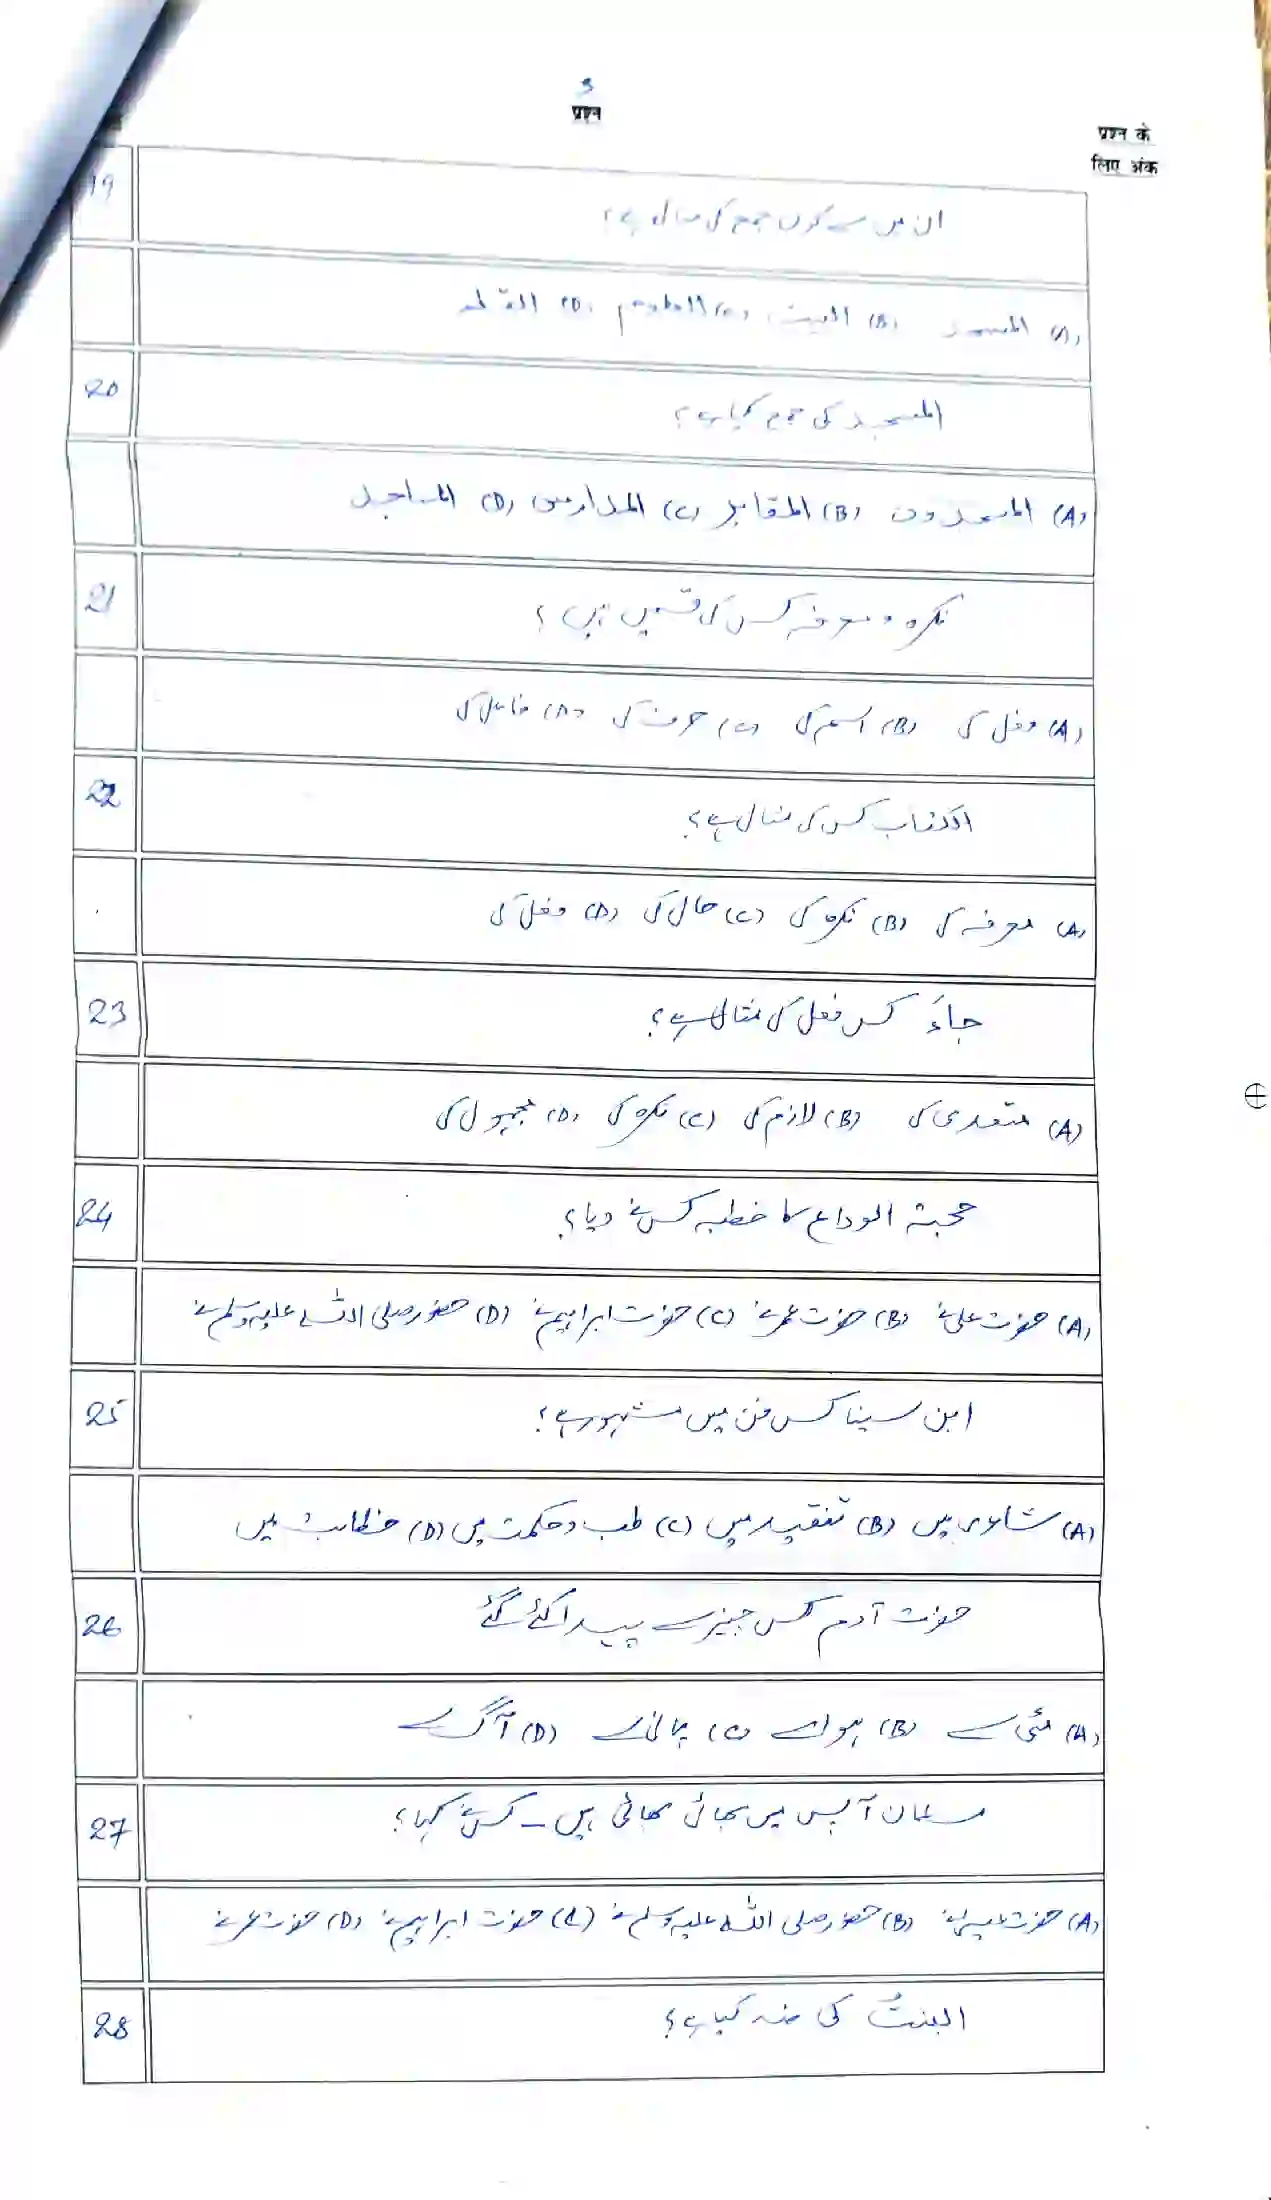 3
प्रश्न
प्रश्न के
लिए अंक
19
ان میں سے کون جمع کی مثال ہے؟
(A) المسجد (B) البیت (C) العلوم (D) القلم
20
المسجد کی جمع کیا ہے؟
(A) المسجدون (B) المقابر (C) المدارس (D) المساجد
21
نکرہ و معرفہ کس کی قسمیں ہیں؟
(A) فعل کی (B) اسم کی (C) حرف کی (D) فاعل کی
22
الکتاب کس کی مثال ہے؟
(A) معرفہ کی (B) نکرہ کی (C) حال کی (D) فعل کی
23
جاءَ کس فعل کی مثال ہے؟
(A) متعدی کی (B) لازم کی (C) نکرہ کی (D) مجہول کی
24
حجۃ الوداع کا خطبہ کس نے دیا؟
(A) حضرت علی نے (B) حضرت عمر نے (C) حضرت ابراہیم نے (D) حضور صلی اللہ علیہ وسلم نے
25
ابن سینا کس فن میں مشہور ہے؟
(A) شاعری میں (B) تنقید میں (C) طب و حکمت میں (D) خطابت میں
26
حضرت آدم کس چیز سے پیدا کئے گئے
(A) مٹی سے (B) ہوا سے (C) پانی سے (D) آگ سے
27
مسلمان آپس میں بھائی بھائی ہیں ـ کس نے کہا؟
(A) حضرت عیسیٰ نے (B) حضور صلی اللہ علیہ وسلم نے (C) حضرت ابراہیم نے (D) حضرت عمر نے
28
البنتُ کی ضد کیا ہے؟